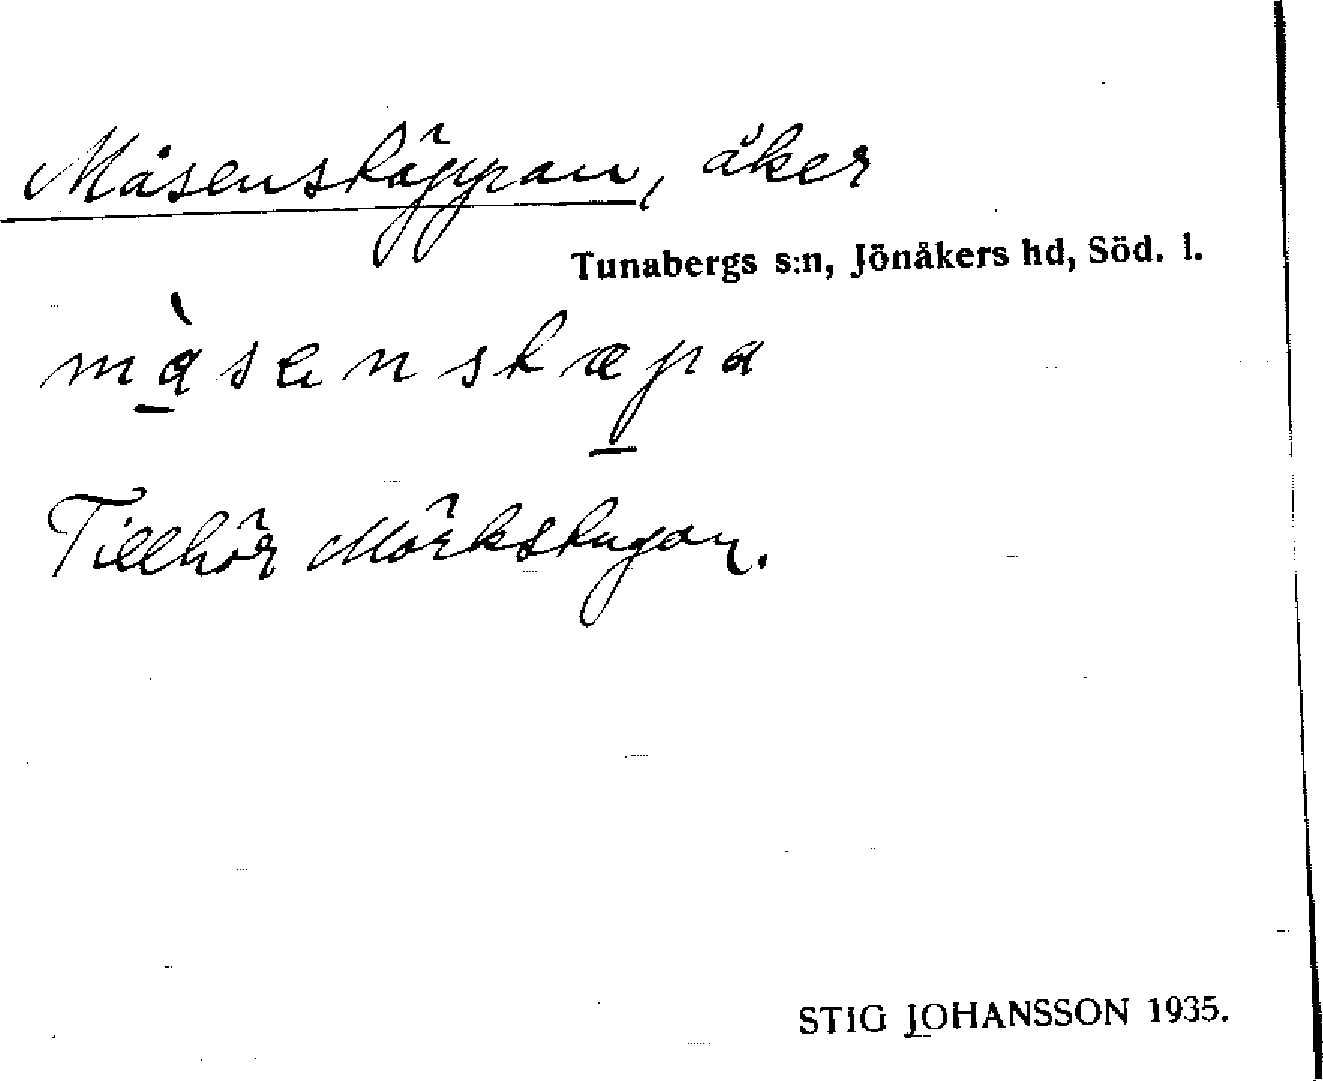 Måsenskäppan, åker
Tunabergs s:n, Jönåkers hd, Söd. l.
màsenskæpa
Tillhör Mörkstugan.
STIG JOHANSSON 1935.